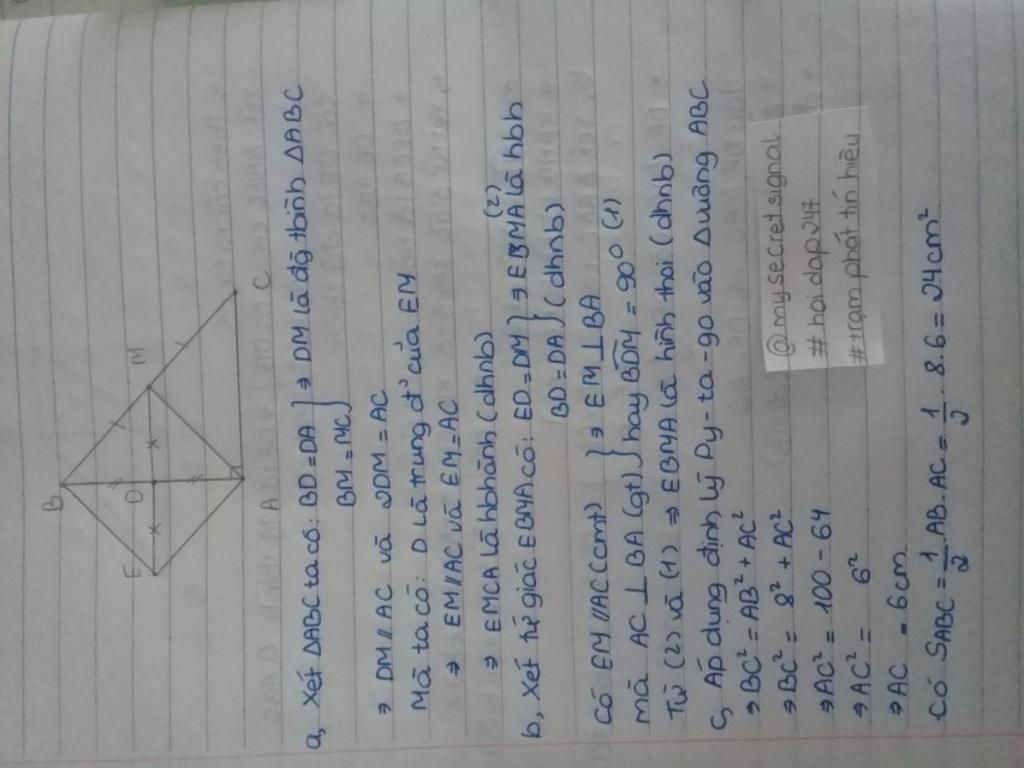 B
E
D
M
A
C
a, Xét ΔABC ta có: BD = DA } ⇒ DM là đg tbình ΔABC
BM = MC }
⇒ DM // AC và 2DM = AC
Mà ta có: D là trung đ² của EM
⇒ EM // AC và EM = AC
⇒ EMCA là hbhành (dhnb)
b, Xét tứ giác EBMA có: ED = DM } ⇒ EBMA là hbh (2)
BD = DA } (dhnb)
Có EM // AC (cmt) } ⇒ EM ⊥ BA
mà AC ⊥ BA (gt) } hay BDM = 90° (1)
Từ (2) và (1) ⇒ EBMA là hình thoi (dhnb)
c, Áp dụng định lý Py-ta-go vào Δ vuông ABC
⇒ BC² = AB² + AC²
⇒ BC² = 8² + AC²
⇒ AC² = 100 - 64
⇒ AC² = 6²
⇒ AC = 6cm
Có SABC = 1/2 . AB. AC = 1/2 . 8.6 = 24cm²
@mysecretsignal
#hoidap247
#trạm phát tín hiệu